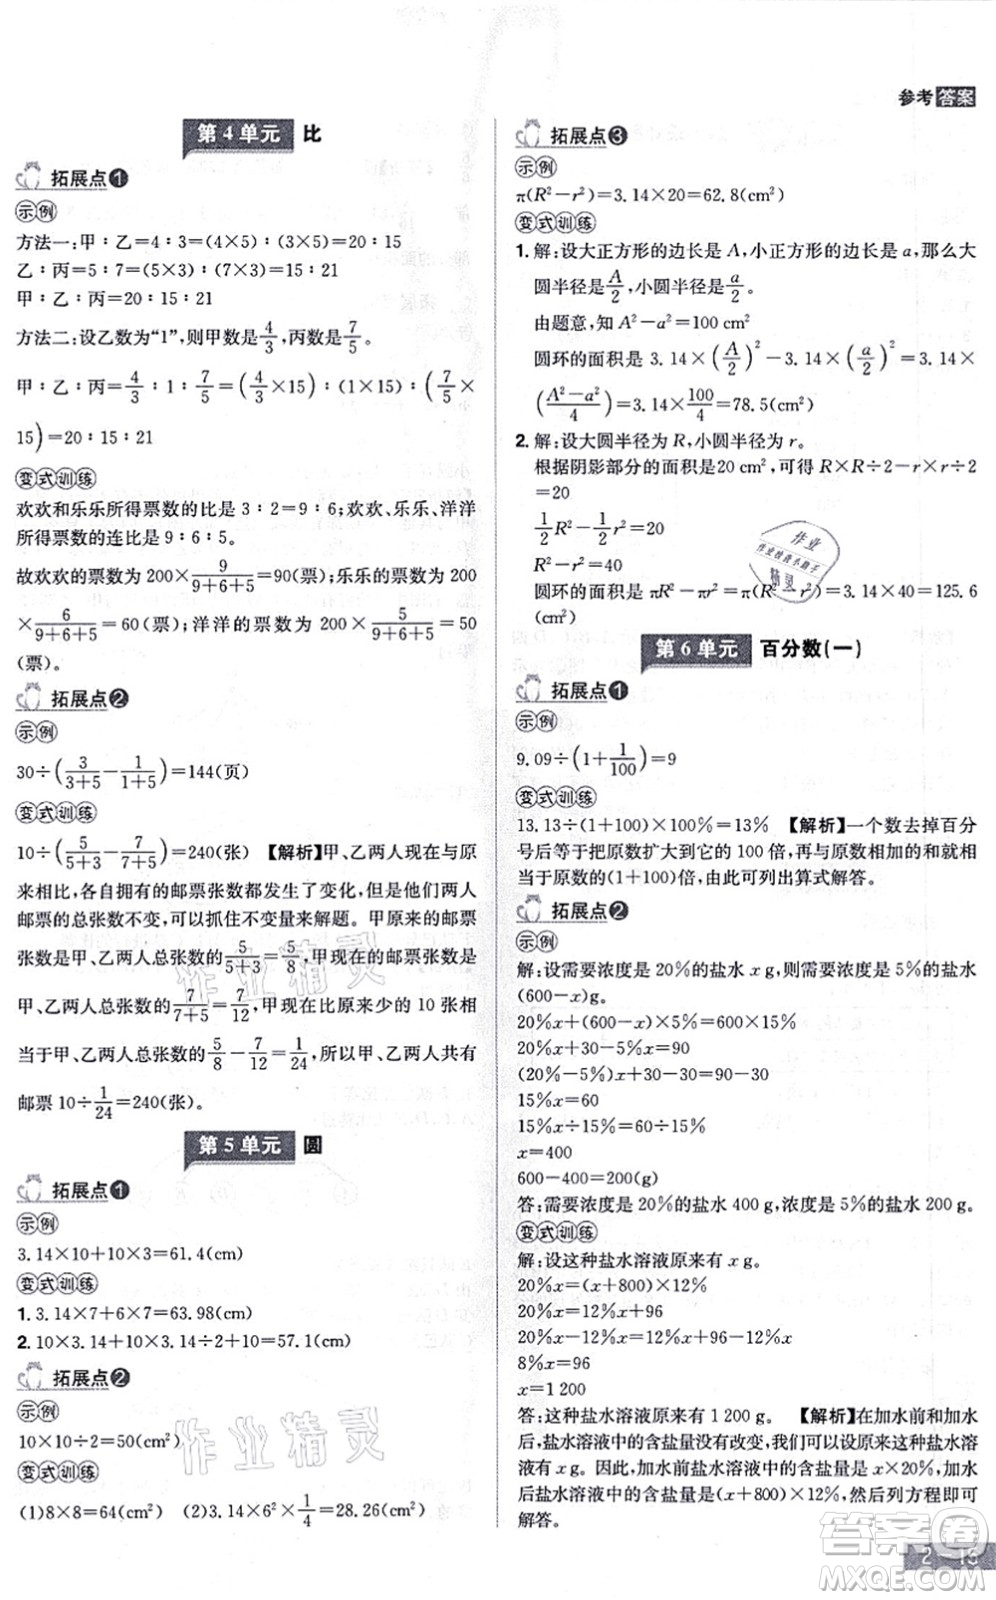 参考答案
第4单元 比
拓展点1
示例
方法一:甲∶乙=4∶3=(4×5)∶(3×5)=20∶15
乙∶丙=5∶7=(5×3)∶(7×3)=15∶21
甲∶乙∶丙=20∶15∶21
方法二:设乙数为“1”,则甲数是4/3,丙数是7/5。
甲∶乙∶丙=4/3∶1∶7/5=(4/3×15)∶(1×15)∶(7/5×
15)=20∶15∶21
变式训练
欢欢和乐乐所得票数的比是3∶2=9∶6;欢欢、乐乐、洋洋
所得票数的连比是9∶6∶5。
故欢欢的票数为200×9/(9+6+5)=90(票);乐乐的票数为200
×6/(9+6+5)=60(票);洋洋的票数为200×5/(9+6+5)=50
(票)。
拓展点2
示例
30÷(3/(3+5)-1/(1+5))=144(页)
变式训练
10÷(5/(5+3)-7/(7+5))=240(张) 【解析】甲、乙两人后来与原来
比,各自拥有的邮票张数都发生了变化,但是他们两人
邮票的总张数不变,可以抓住不变量来解题。甲原来的邮票
张数是甲、乙两人总张数的5/(5+3)=5/8,后来甲的邮票张数是
甲、乙两人总张数的7/(7+5)=7/12,甲现在比原来少的10张相
当于甲、乙两人总张数的5/8-7/12=1/24,所以,甲、乙两人共有
邮票10÷1/24=240(张)。
第5单元 圆
拓展点1
示例
3.14×10+10×3=61.4(cm)
变式训练
1.3.14×7+6×7=63.98(cm)
2.10×3.14+10×3.14÷2+10=57.1(cm)
拓展点2
示例
10×10÷2=50(cm²)
变式训练
(1)8×8=64(cm²) (2)3.14×6²×1/4=28.26(cm²)
拓展点3
示例
π(R²-r²)=3.14×20=62.8(cm²)
变式训练
1.解:设大正方形的边长是A,小正方形的边长是a,那么大
圆半径是A/2,小圆半径是a/2。
由题意,知A²-a²=100 cm²
圆环的面积是3.14×(A/2)²-3.14×(a/2)²=3.14×
((A²-a²)/4)=3.14×100/4=78.5(cm²)
2.解:设大圆半径为R,小圆半径为r。
根据阴影部分的面积是20 cm²,可得R×R÷2-r×r÷2
=20
1/2R²-1/2r²=20
R²-r²=40
圆环的面积是πR²-πr²=π(R²-r²)=3.14×40=125.6
(cm²)
第6单元 百分数(一)
拓展点1
示例
9.09÷(1+1/100)=9
变式训练
13.13÷(1+100)×100%=13% 【解析】一个数去掉百分
号后等于把原数扩大到它的100倍,再与原数相加的和就相
当于原数的(1+100)倍,由此可列出算式解答。
拓展点2
示例
解:设需要浓度是20%的盐水x g,则需要浓度是5%的盐水
(600-x)g。
20%x+(600-x)×5%=600×15%
20%x+30-5%x=90
(20%-5%)x+30=90
15%x=60
15%x÷15%=60÷15%
x=400
600-400=200(g)
答:需要浓度是20%的盐水400 g,浓度是5%的盐水200 g。
变式训练
解:设这种盐水溶液原来有x g。
20%x=(x+800)×12%
20%x=12%x+96
20%x-12%x=12%x+96-12%x
8%x=96
x=1 200
答:这种盐水溶液原来有1 200 g。 【解析】在加水前和加水
后,盐水溶液中的含盐量没有改变,我们可以设原来盐水溶液
有x g。因此,加水前盐水溶液中的含盐量是x×20%,加水
后盐水溶液中的含盐量是(x+800)×12%,然后列方程即可
解答。
2-15
作业精灵
作业精灵
作业
精灵
答案圈
MXQE.COM